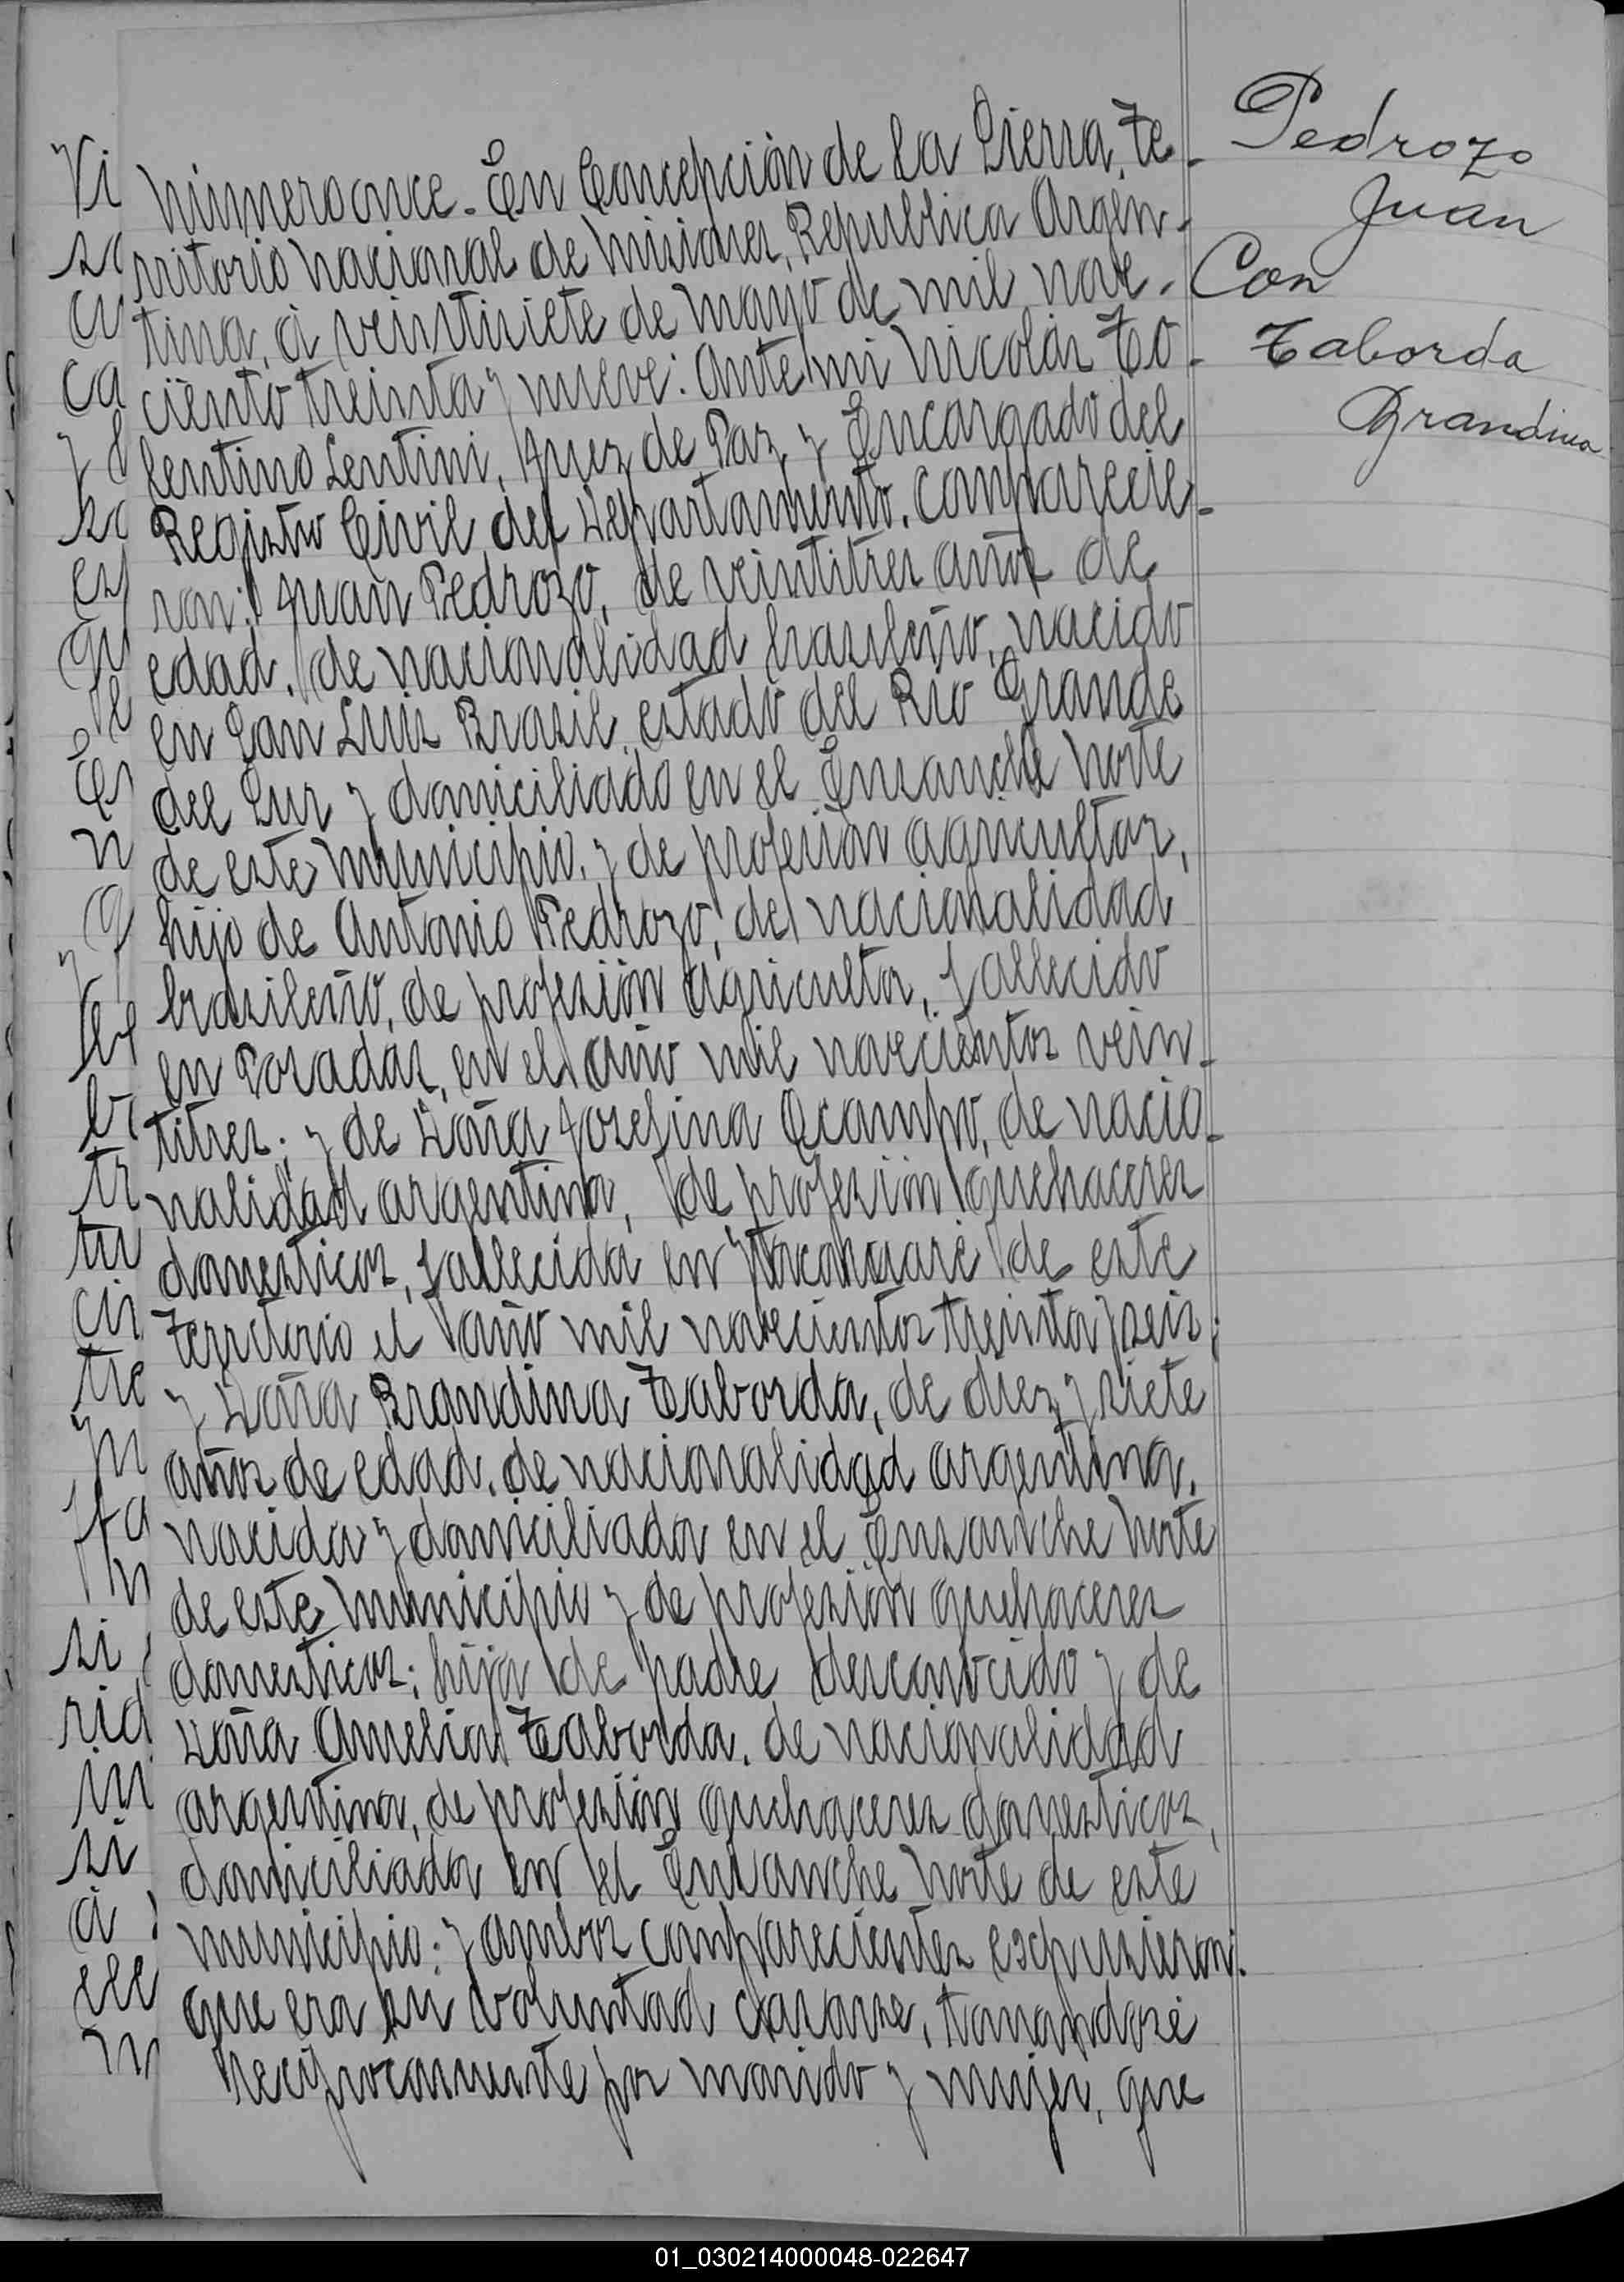 Número once. En Concepción de la Sierra, Te-
rritorio Nacional de Misiones, Republica Argen-
tina, à veintisiete de Mayo de mil nove-
ciento treinta y nueve: Ante mi Nicolás To-
lentino Lentini, Juez de Paz y Encargado del
Registro Civil del Departamento, Comparecie-
ron: Juan Pedrozo, de veintitres años de
edad, de nacionalidad brasileño, nacido
en San Luis Brasil, estado del Rio Grande
del Sur y domiciliado en el Ensanche Norte
de este Municipio, y de profesión agricultor,
hijo de Antonio Pedrozo, de nacionalidad
brasileño, de profesión agricultor, fallecido
en Posadas, en el año mil novecientos vein-
titres; y de Doña Josefina Ocampo, de nacio-
nalidad argentina, de profesión quehaceres
domesticos, fallecida en de este
Territorio el año mil novecientos treinta y seis;
y Doña Brandina Taborda, de diez y siete
años de edad, de nacionalidad argentina,
nacida y domiciliada en el Ensanche Norte
de este Municipio y de profesión quehaceres
domesticos; hija de padre desconocido y de
Doña Amelia Taborda, de nacionalidad
argentina, de profesión quehaceres domesticos,
domiciliada en el Ensanche Norte de este
municipio; y ambos comparecientes expusieron:
que era su voluntad casarse, tomandosé
reciprocamente por marido y mujer, que
Pedrozo
Juan
Con
Taborda
Brandina
01_030214000048-022647